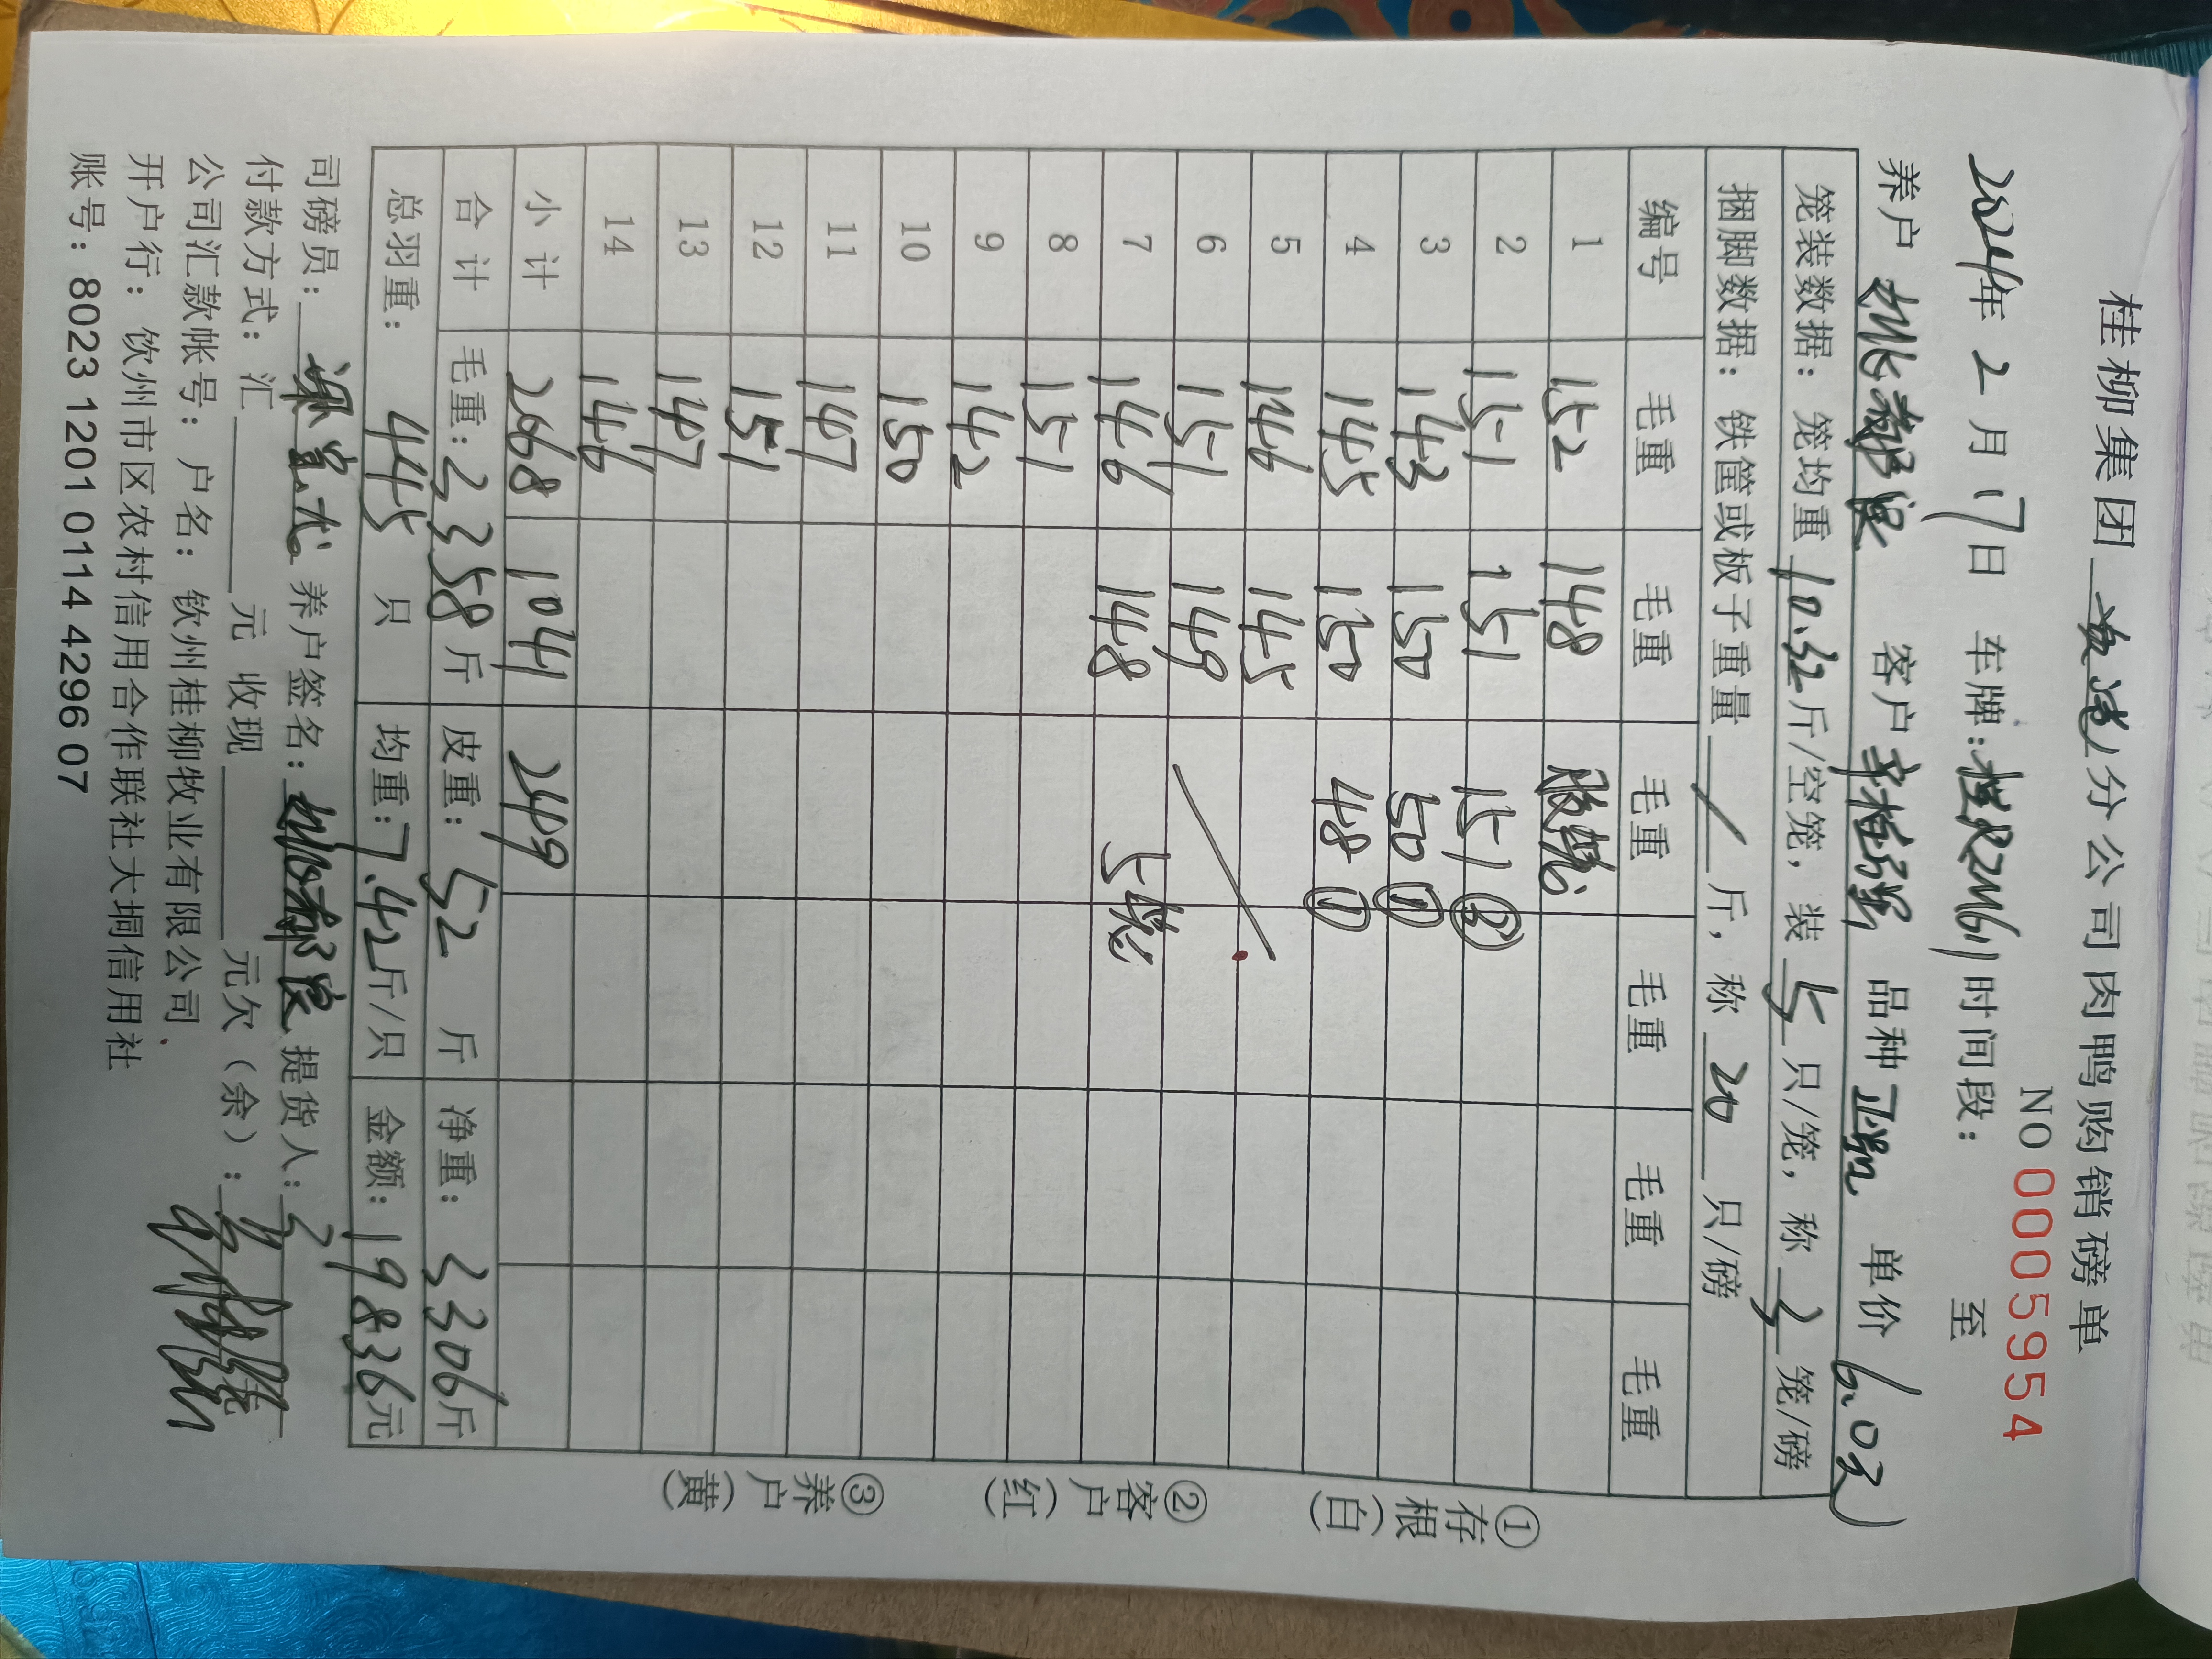 桂柳集团 分公司肉鸭购销磅单
NO 0005954
2024年 2 月 17日 车牌:桂R2M61 时间段: 至
养户 客户 品种 单价 6.0元
笼装数据: 笼均重 10.32 斤/空笼, 装 5 只/笼, 称 笼/磅
捆脚数据: 铁筐或板子重量 / 斤, 称 20 只/磅
编号 毛重 毛重 毛重 毛重 毛重 毛重
1 152 148
2 151 151 151 ③
3 143 150 50 ①
4 145 150 48 ①
5 146 145
6 151 149
7 146 148
8 151
9 142
10 150
11 147
12 151
13 147
14 146
小计 2068 1041 249
合计 毛重: 3358 斤 皮重: 52 斤 净重: 3306斤
总羽重: 445 只 均重: 7.42斤/只 金额: 19836元
司磅员: 养户签名: 提货人:
付款方式: 汇 元 收现 元欠（余）:
公司汇款帐号: 户名: 钦州桂柳牧业有限公司
开户行: 钦州市区农村信用合作联社大垌信用社
账号: 8023 1201 0114 4296 07
①存根（白）
②客户（红）
③养户（黄）